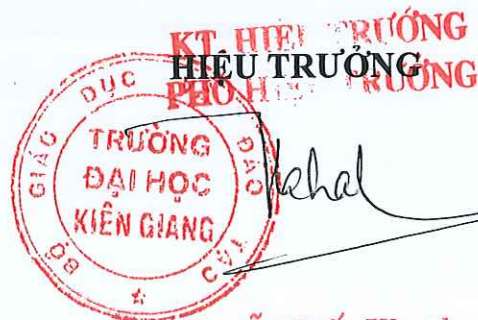 KT. HIỆU TRƯỞNG
HIỆU TRƯỞNG
PHÓ HIỆU TRƯỞNG
BỘ GIÁO DỤC ĐÀO TẠO
TRƯỜNG
ĐẠI HỌC
KIÊN GIANG